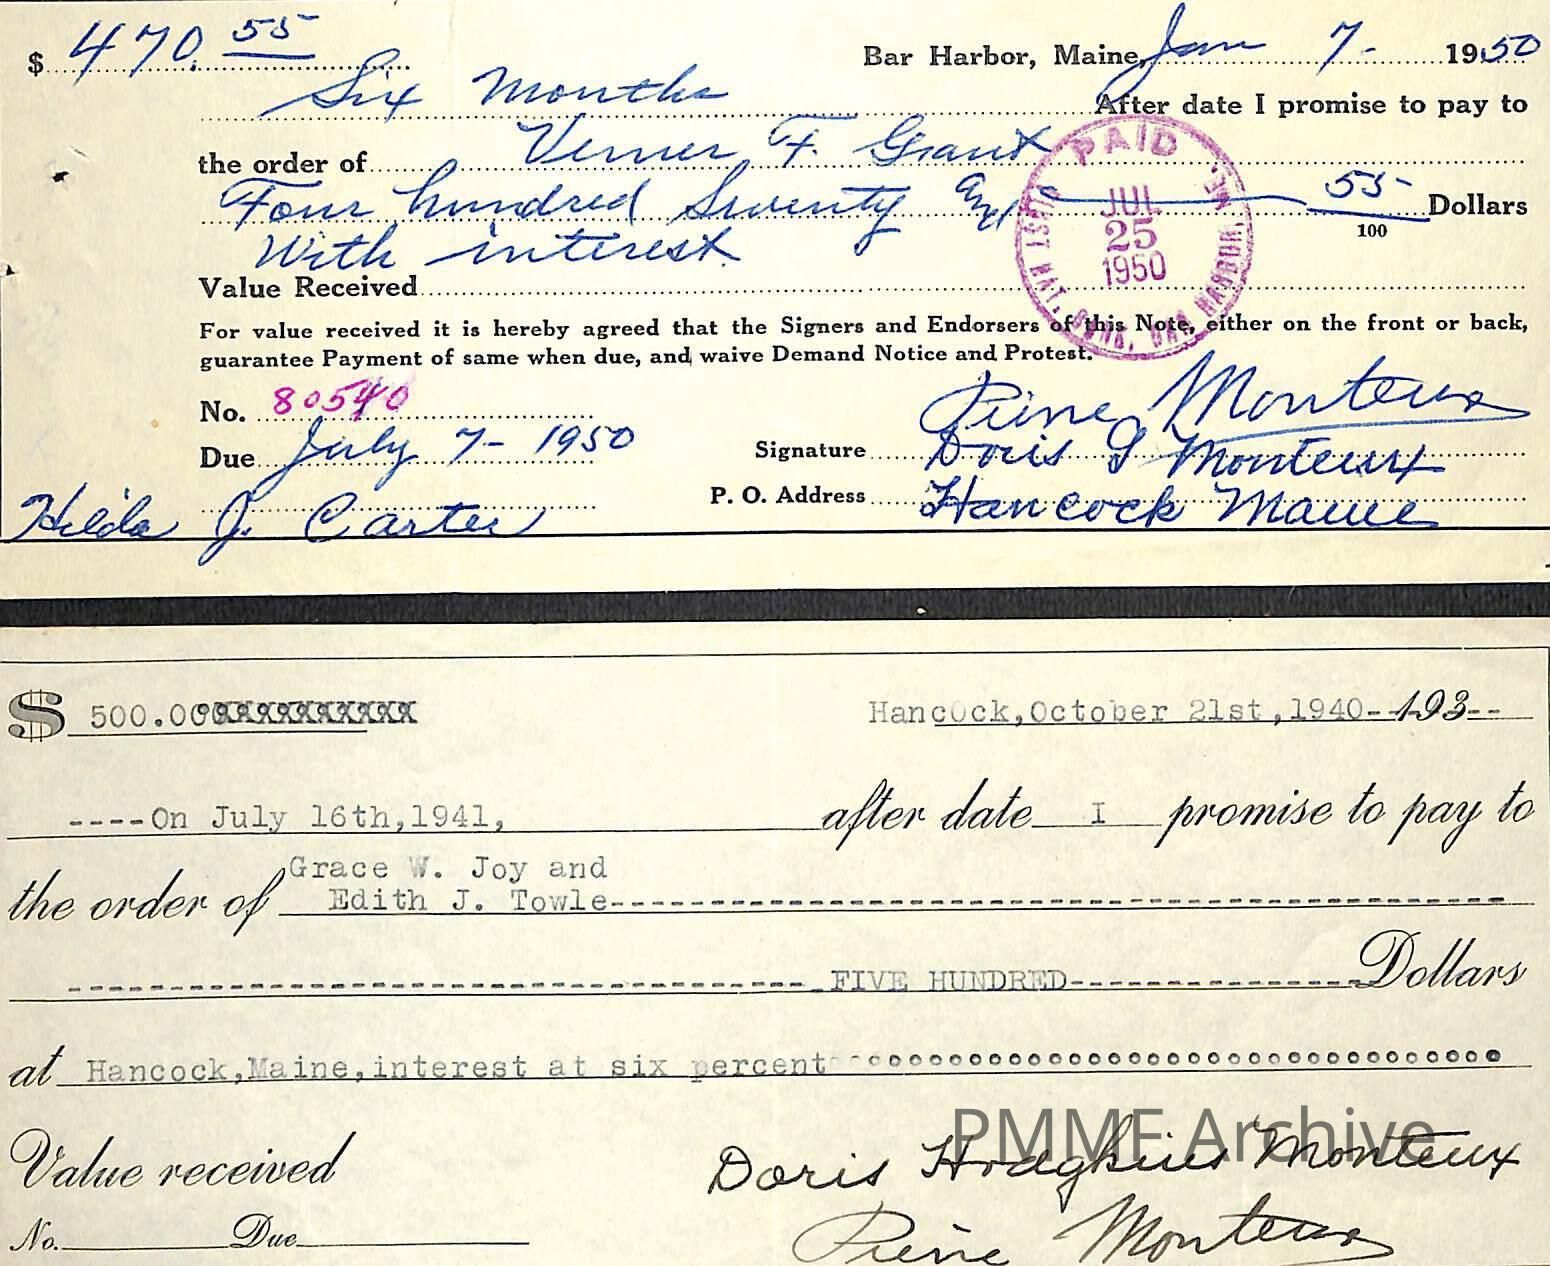 $ 470.55 Bar Harbor, Maine, Jan 7- 1950
Six Months After date I promise to pay to
the order of Verner F. Grant
Four hundred Seventy and 55/100 Dollars
With interest.
Value Received
For value received it is hereby agreed that the Signers and Endorsers of this Note, either on the front or back,
guarantee Payment of same when due, and waive Demand Notice and Protest.
No. 80540
Pierre Monteux
Due July 7- 1950 Signature Doris G Monteux
P. O. Address Hancock Maine
Hilda J. Carter
PAID
JUL
25
1950
FIRST NAT. BANK, BAR HARBOR, ME.
$ 500.00XXXXXXXXXX Hancock,October 21st,1940--193--
----On July 16th,1941, after date I promise to pay to
Grace W. Joy and
the order of Edith J. Towle--------------------------------------------
------------------------------------FIVE HUNDRED--------------Dollars
at Hancock,Maine,interest at six percent
PMMF Archive
Value received Doris Hodgkins Monteux
No. Due Pierre Monteux